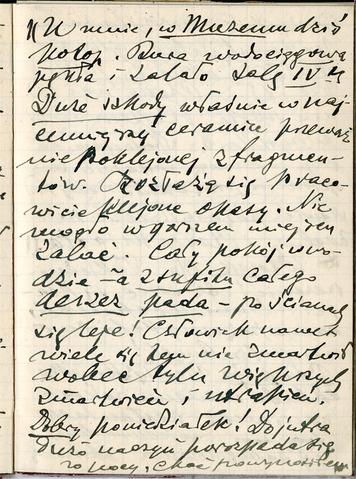 "U mnie, w Muzeum dziś
potop. Rura wodociągowa
pękła i zalało salę IV-tą
Duże szkody właśnie w naj
cenniejszej ceramice przeważ
nie poklejonej z fragmen-
tów. Rozłażą się praco-
wicie klejone okazy. Nie
mogło w gorszem miejscu
zalać. Cały pokój w wo-
dzie – a z sufitu całego
deszcz pada – po ścianach
się leje! Człowiek nawet
wiele się tem nie zmartwił
wobec tylu większych
zmartwień i utrapień.
Dobry poniedziałek! Do jutra
dużo naczyń porozpada się
to mocy, choć powynosiłem